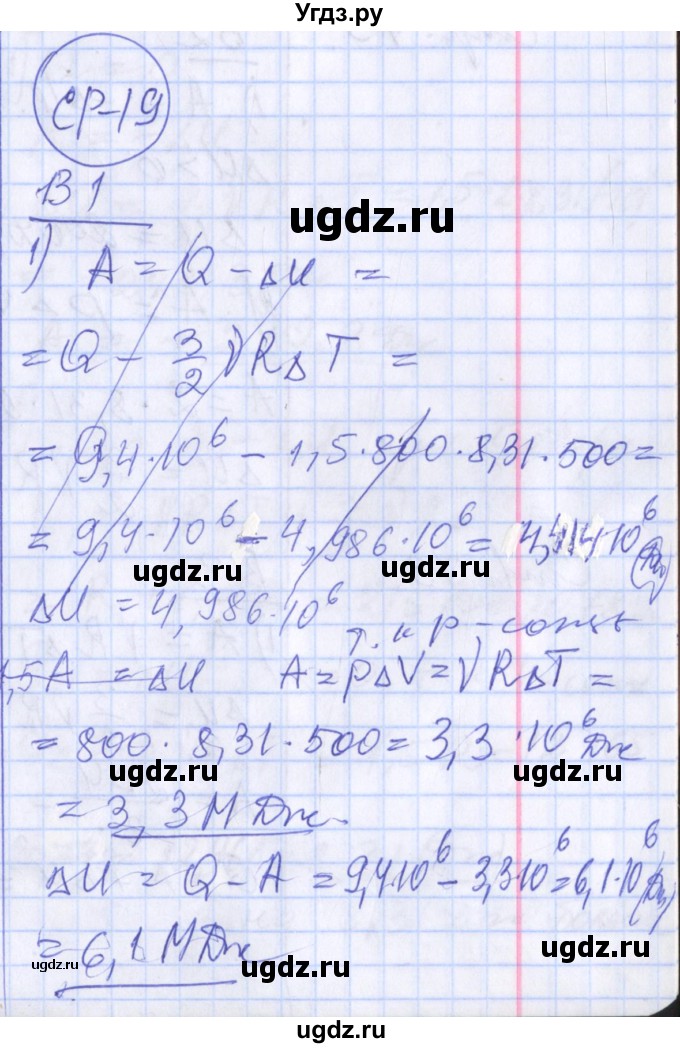 Угдз.ру
СР-19
В 1
ugdz.ru
1) A = Q - ΔU =
= Q - 3/2 νRΔT =
= 9,4·10⁶ - 1,5·800·8,31·500 =
= 9,4·10⁶ - 4,986·10⁶ = 4,414·10⁶ (Дж)
ugdz.ru ugdz.ru
ΔU = 4,986·10⁶
т. к p - const
1,5A = ΔU A = pΔV = νRΔT =
= 800·8,31·500 = 3,3·10⁶ Дж
ugdz.ru ugdz.ru
= 3,3 МДж
ΔU = Q - A = 9,4·10⁶ - 3,3·10⁶ = 6,1·10⁶ (Дж)
= 6,1 МДж
ugdz.ru ugdz.ru ugdz.ru
ugdz.ru